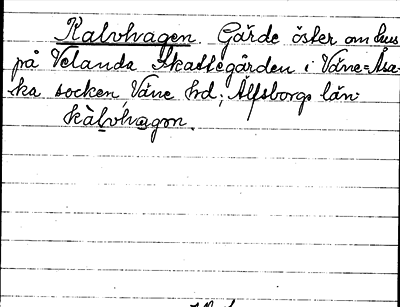 Kalvhagen. Gärde öster om hus
på Velanda Skattegården i Väne-Åsa-
ka socken, Väne hd; Älfsborgs län.
kàlvhagen.